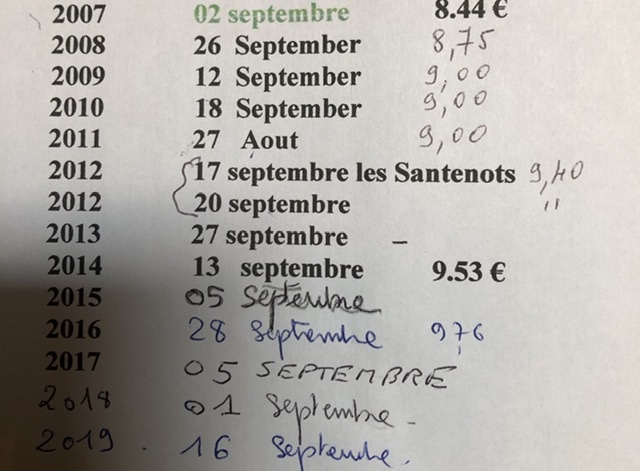 2007 02 septembre 8.44 €
2008 26 September 8,75
2009 12 September 9,00
2010 18 September 9,00
2011 27 Aout 9,00
2012 17 septembre les Santenots 9,40
2012 20 septembre "
2013 27 septembre –
2014 13 septembre 9.53 €
2015 05 septembre
2016 28 septembre 9,76
2017 05 SEPTEMBRE
2018 01 septembre -
2019. 16 septembre.